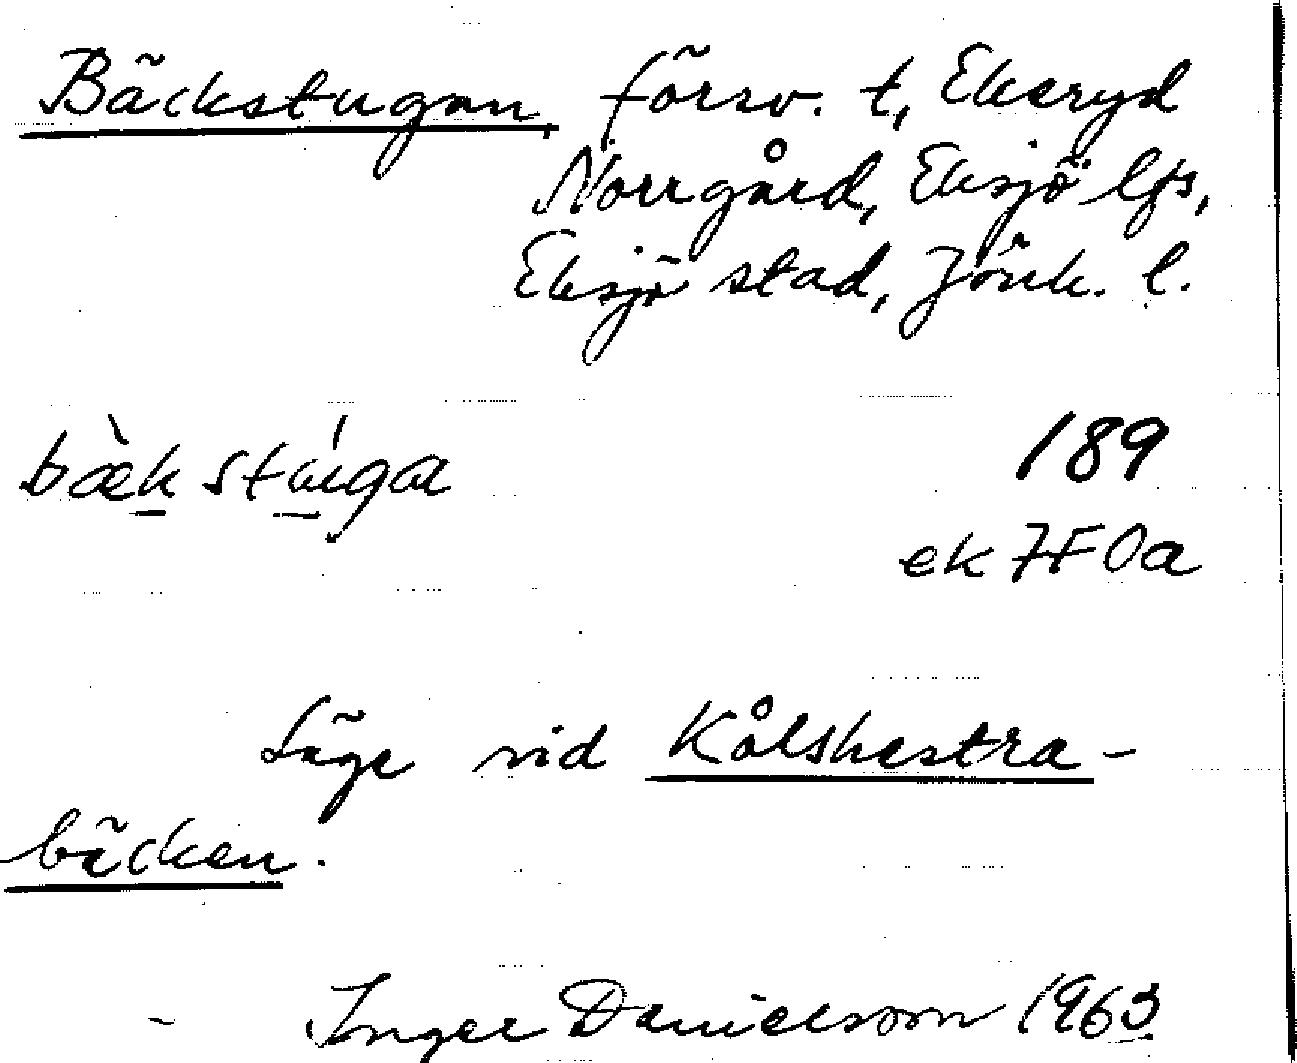 Bäckstugan, försv. t, Ekeryd
Norrgård, Eksjö lfs,
Eksjö stad, Jönk. l.
bæ̀kstúga 189
ek 7F0a
Läge vid Kålshestra-
bäcken.
- Inger Danielsson 1963